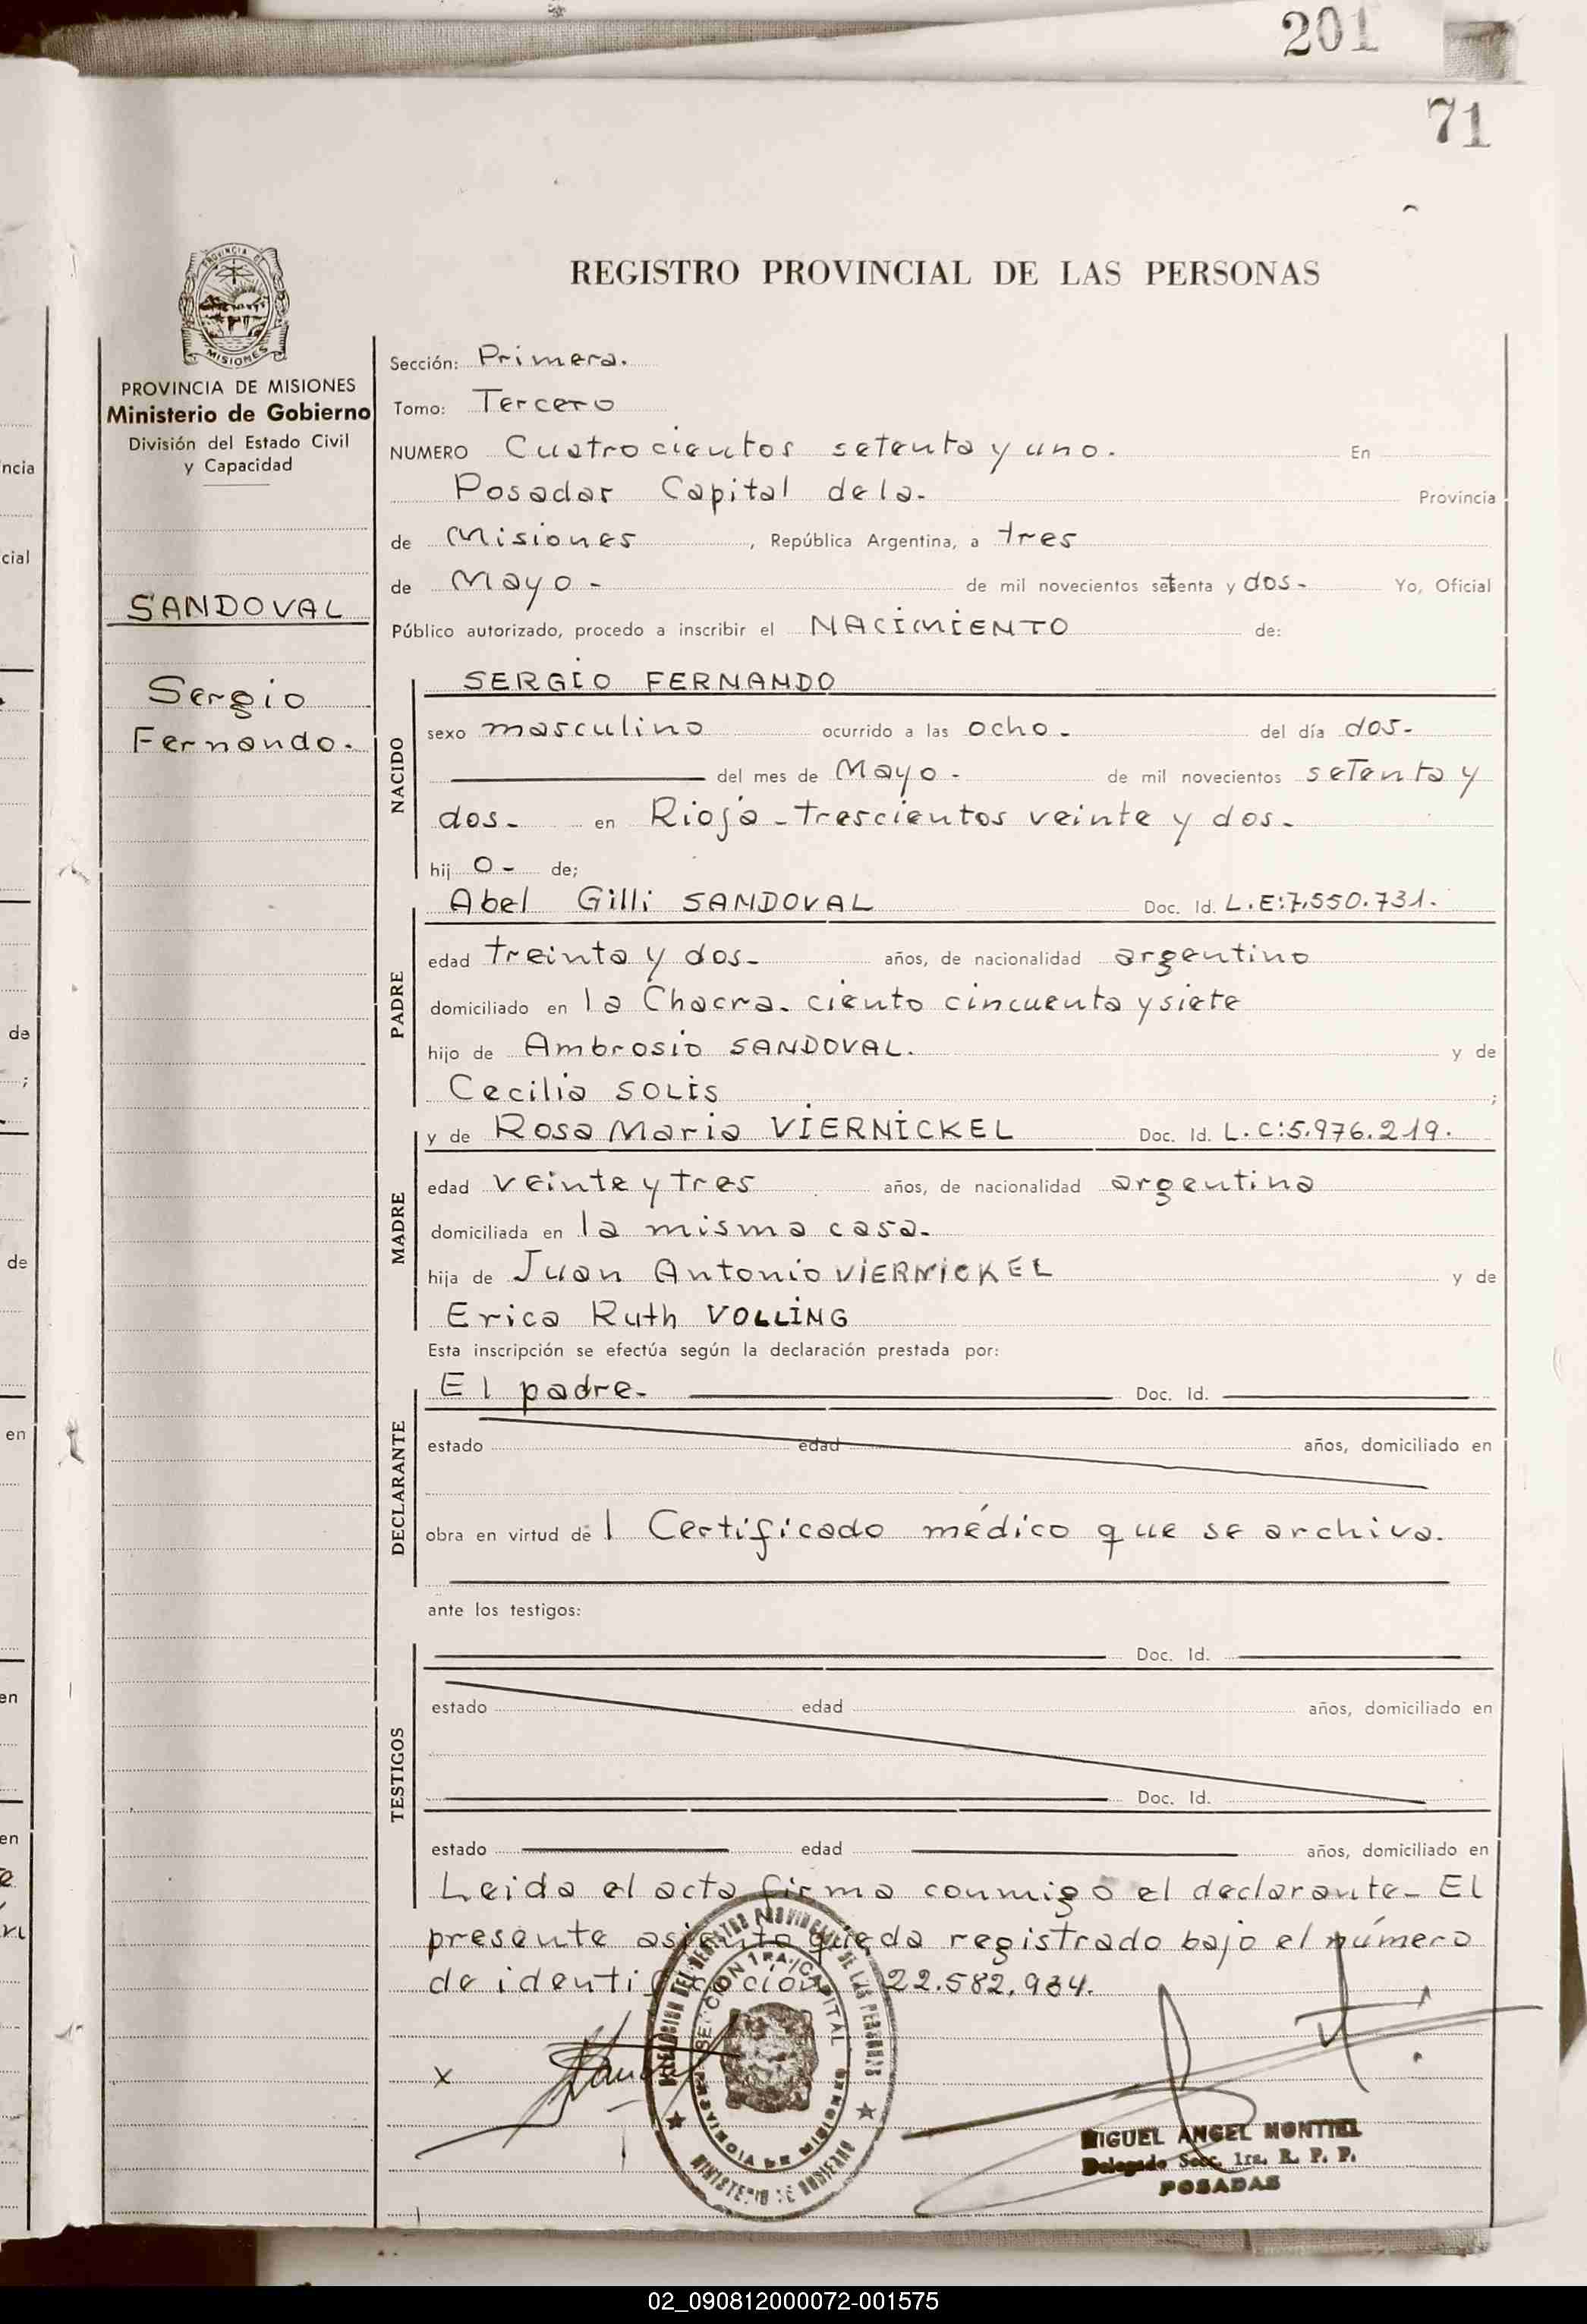 201
71
PROVINCIA DE
MISIONES
PROVINCIA DE MISIONES
Ministerio de Gobierno
División del Estado Civil
y Capacidad
SANDOVAL
Sergio
Fernando.
REGISTRO PROVINCIAL DE LAS PERSONAS
Sección: Primera.
Tomo: Tercero
NUMERO Cuatrocientos setenta y uno. En
Posadas Capital de la. Provincia
de Misiones, República Argentina, a tres
de Mayo - de mil novecientos setenta y dos- Yo, Oficial
Público autorizado, procedo a inscribir el NACIMIENTO de:
NACIDO
SERGIO FERNANDO
sexo masculino ocurrido a las ocho. del día dos-
del mes de Mayo - de mil novecientos setenta y
dos- en Rioja - trescientos veinte y dos-
hij o- de;
PADRE
Abel Gilli SANDOVAL Doc. Id. L.E:7.550.731.
edad treinta y dos- años, de nacionalidad argentino
domiciliado en la Chacra. ciento cincuenta y siete
hijo de Ambrosio SANDOVAL. y de
Cecilia SOLIS ;
MADRE
y de Rosa Maria VIERNICKEL Doc. Id. L.C:5.976.219.
edad veinte y tres años, de nacionalidad argentina
domiciliada en la misma casa.
hija de Juan Antonio VIERNICKEL y de
Erica Ruth VOLLING
Esta inscripción se efectúa según la declaración prestada por:
DECLARANTE
El padre. Doc. Id.
estado edad años, domiciliado en
obra en virtud de l Certificado médico que se archiva.
ante los testigos:
TESTIGOS
Doc. Id.
estado edad años, domiciliado en
Doc. Id.
estado edad años, domiciliado en
Leida el acta firma conmigo el declarante- El
presente asiento queda registrado bajo el número
de identificación 22.582.934.
x
DELEGACION DEL REGISTRO PROVINCIAL DE LAS PERSONAS
SECCION 1RA. CAPITAL
PROVINCIA DE MISIONES
MINISTERIO DE GOBIERNO
MIGUEL ANGEL MONTIEL
Delegado Secc. 1ra. R. P. P.
POSADAS
ncia
cial
de
;
de
en
en
en
02_090812000072-001575